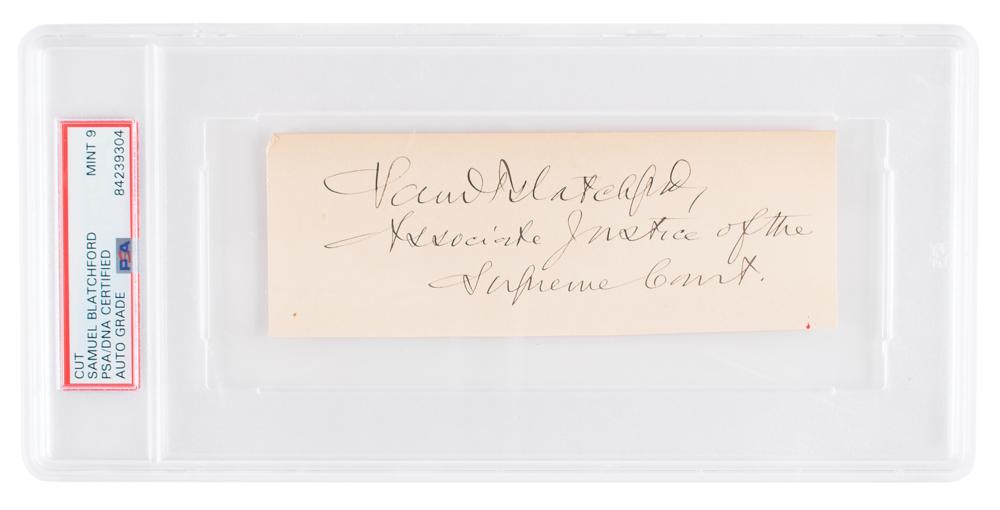 CUT
SAMUEL BLATCHFORD
PSA/DNA CERTIFIED
AUTO GRADE
MINT 9
84239304
PSA
Saml Blatchford,
Associate Justice of the
Supreme Court.